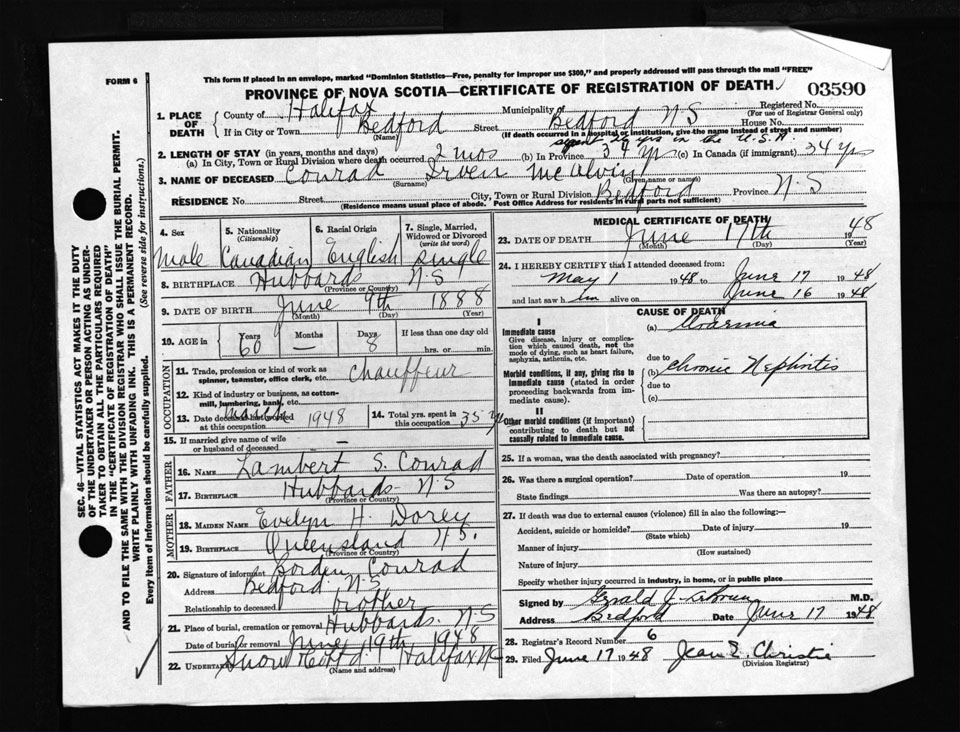 FORM 6
This form if placed in an envelope, marked "Dominion Statistics—Free, penalty for improper use $300," and properly addressed will pass through the mail "FREE"
PROVINCE OF NOVA SCOTIA—CERTIFICATE OF REGISTRATION OF DEATH
03590
1. PLACE OF DEATH
County of Halifax Municipality of Bedford N S Registered No.
(For use of Registrar General only)
If in City or Town Bedford Street House No.
(Name) (If death occurred in a hospital or institution, give the name instead of street and number)
spent yrs in the U.S.A.
2. LENGTH OF STAY (in years, months and days)
(a) In City, Town or Rural Division where death occurred 2 mos (b) In Province yrs (c) In Canada (if immigrant) 34 yrs
3. NAME OF DECEASED Conrad Irven McAlvin
(Surname) (Given name or names)
RESIDENCE No. Street City, Town or Rural Division Bedford Province N-S
(Residence means usual place of abode. Post Office Address for residents in rural parts not sufficient)
4. Sex 5. Nationality (Citizenship) 6. Racial Origin 7. Single, Married, Widowed or Divorced (write the word)
Male Canadian English Single
8. BIRTHPLACE Hubbards N S
(Province or Country)
9. DATE OF BIRTH June 9th 1888
(Month) (Day) (Year)
10. AGE in Years 60 Months — Days 8 If less than one day old
hrs. or min.
OCCUPATION
11. Trade, profession or kind of work as spinner, teamster, office clerk, etc. Chauffeur
12. Kind of industry or business, as cotton-mill, lumbering, bank, etc.
13. Date deceased last worked at this occupation March 1948 14. Total yrs. spent in this occupation 35 yrs
15. If married give name of wife or husband of deceased —
FATHER
16. NAME Lambert S. Conrad
17. BIRTHPLACE Hubbards N-S
(Province or Country)
MOTHER
18. MAIDEN NAME Evelyn H. Dorey
19. BIRTHPLACE Queensland N.S.
(Province or Country)
20. Signature of informant Borden Conrad
Address Bedford N-S
Relationship to deceased brother
21. Place of burial, cremation or removal Hubbards. N-S
Date of burial or removal June 19th 1948
22. Undertaker Snow Co Ltd. Halifax NS
(Name and address)
MEDICAL CERTIFICATE OF DEATH
23. DATE OF DEATH June 17th 1948
(Month) (Day) (Year)
24. I HEREBY CERTIFY that I attended deceased from:
May 1 1948 to June 17 1948
and last saw him alive on June 16 1948
CAUSE OF DEATH
I
Immediate cause
Give disease, injury or complication which caused death, not the mode of dying, such as heart failure, asphyxia, asthenia, etc.
(a) Uraemia
due to
Morbid conditions, if any, giving rise to immediate cause (stated in order proceeding backwards from immediate cause).
(b) Chronic Nephritis
due to
(c)
II
Other morbid conditions (if important) contributing to death but not causally related to immediate cause.
25. If a woman, was the death associated with pregnancy?
26. Was there a surgical operation? Date of operation 19
State findings Was there an autopsy?
27. If death was due to external causes (violence) fill in also the following:—
Accident, suicide or homicide? Date of injury 19
(State which)
Manner of injury
(How sustained)
Nature of injury
Specify whether injury occurred in industry, in home, or in public place
Signed by Gerald J. M.D.
Address Bedford Date June 17 1948
28. Registrar's Record Number 6
29. Filed June 17 1948 Jean E. Christie
(Division Registrar)
SEC. 46—VITAL STATISTICS ACT MAKES IT THE DUTY
OF THE UNDERTAKER OR PERSON ACTING AS UNDERTAKER TO OBTAIN ALL THE PARTICULARS REQUIRED
IN THE "CERTIFICATE OF REGISTRATION OF DEATH"
AND TO FILE THE SAME WITH THE DIVISION REGISTRAR WHO SHALL ISSUE THE BURIAL PERMIT.
WRITE PLAINLY WITH UNFADING INK. THIS IS A PERMANENT RECORD.
Every item of information should be carefully supplied. (See reverse side for instructions.)